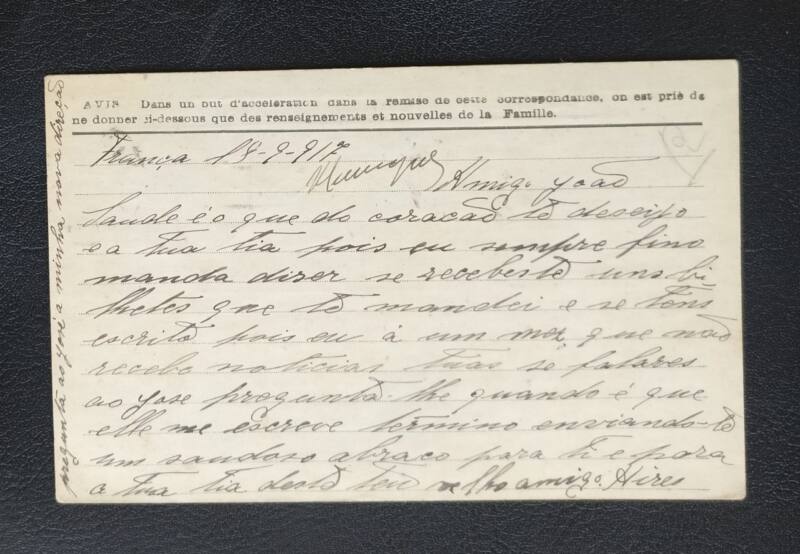 AVIS Dans un but d'acceleration dans la remise de cette correspondance, on est prié de
ne donner ci-dessous que des renseignements et nouvelles de la Famille.
França 18-9-917
Amigo João
Saude é o que do coracão tê deseijo
e a tua tia pois eu sempre fino
manda diser se recebestê uns bi-
lhetes que tê mandei e se tens
escritô pois eu á um mez que não
recebo noticias tuas se falares
ao jose pregunta-lhe quando é que
elle me escreve termino enviando-tê
um saudoso abraco para ti e para
a tua tia destê teu velho amigo. Aires
preguntà ao josé a minha nova direcão